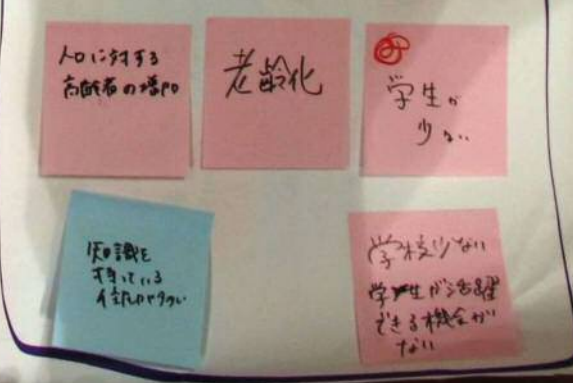 人口に対する
高齢者の増加
老齢化
学生が
少ない
知識を
持っている
学校少ない
学生が活躍
できる機会が
ない